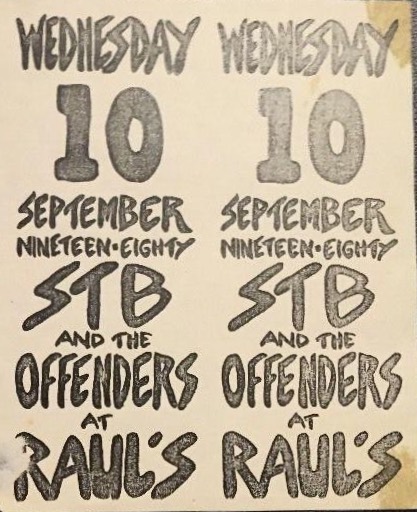 WEDNESDAY
10
SEPTEMBER
NINETEEN·EIGHTY
STB
AND THE
OFFENDERS
AT
RAUL'S
WEDNESDAY
10
SEPTEMBER
NINETEEN·EIGHTY
STB
AND THE
OFFENDERS
AT
RAUL'S